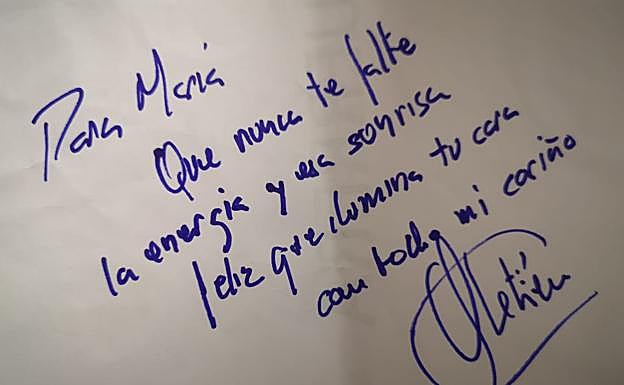 Para María
Que nunca te falte
la energia y esa sonrisa
feliz que ilumina tu cara
con todo mi cariño